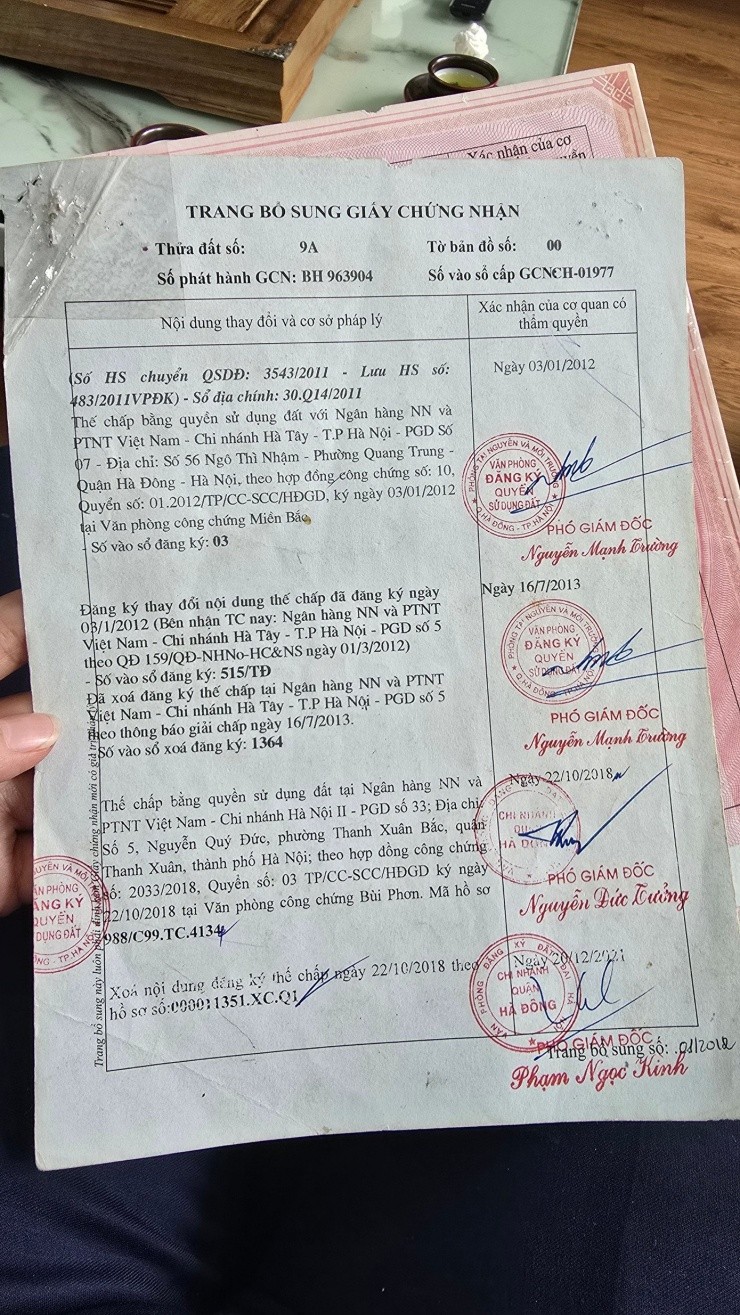 Xác nhận của cơ
TRANG BỔ SUNG GIẤY CHỨNG NHẬN
Thửa đất số: 9A Tờ bản đồ số: 00
Số phát hành GCN: BH 963904 Số vào sổ cấp GCN:CH-01977
Nội dung thay đổi và cơ sở pháp lý
Xác nhận của cơ quan có
thẩm quyền
(Số HS chuyển QSDĐ: 3543/2011 - Lưu HS số:
483/2011VPĐK) - Sổ địa chính: 30.Q14/2011
Thế chấp bằng quyền sử dụng đất với Ngân hàng NN và
PTNT Việt Nam - Chi nhánh Hà Tây - T.P Hà Nội - PGD Số
07 - Địa chỉ: Số 56 Ngô Thì Nhậm - Phường Quang Trung -
Quận Hà Đông - Hà Nội, theo hợp đồng công chứng số: 10,
Quyển số: 01.2012/TP/CC-SCC/HĐGD, ký ngày 03/01/2012
tại Văn phòng công chứng Miền Bắc.
- Số vào sổ đăng ký: 03
Ngày 03/01/2012
PHÒNG TÀI NGUYÊN VÀ MÔI TRƯỜNG
VĂN PHÒNG
ĐĂNG KÝ
QUYỀN
SỬ DỤNG ĐẤT
Q.HÀ ĐÔNG - TP.HÀ NỘI
PHÓ GIÁM ĐỐC
Nguyễn Mạnh Trường
Đăng ký thay đổi nội dung thế chấp đã đăng ký ngày
03/1/2012 (Bên nhận TC nay: Ngân hàng NN và PTNT
Việt Nam - Chi nhánh Hà Tây - T.P Hà Nội - PGD số 5
theo QĐ 159/QĐ-NHNo-HC&NS ngày 01/3/2012)
- Số vào sổ đăng ký: 515/TĐ
Đã xoá đăng ký thế chấp tại Ngân hàng NN và PTNT
Việt Nam - Chi nhánh Hà Tây - T.P Hà Nội - PGD số 5
theo thông báo giải chấp ngày 16/7/2013.
Số vào sổ xoá đăng ký: 1364
Ngày 16/7/2013
PHÒNG TÀI NGUYÊN VÀ MÔI TRƯỜNG
VĂN PHÒNG
ĐĂNG KÝ
QUYỀN
SỬ DỤNG ĐẤT
Q.HÀ ĐÔNG - TP.HÀ NỘI
PHÓ GIÁM ĐỐC
Nguyễn Mạnh Trường
Thế chấp bằng quyền sử dụng đất tại Ngân hàng NN và
PTNT Việt Nam - Chi nhánh Hà Nội II - PGD số 33; Địa chỉ:
Số 5, Nguyễn Quý Đức, phường Thanh Xuân Bắc, quận
Thanh Xuân, thành phố Hà Nội; theo hợp đồng công chứng
số: 2033/2018, Quyển số: 03 TP/CC-SCC/HĐGD ký ngày
22/10/2018 tại Văn phòng công chứng Bùi Phơn. Mã hồ sơ
988/C99.TC.4134
Ngày 22/10/2018
CHI NHÁNH
QUẬN
HÀ ĐÔNG
PHÓ GIÁM ĐỐC
Nguyễn Đức Tưởng
Xoá nội dung đăng ký thế chấp ngày 22/10/2018 theo
hồ sơ số:000011351.XC.Q1
Ngày 20/12/2021
VĂN PHÒNG ĐĂNG KÝ ĐẤT ĐAI HÀ NỘI
CHI NHÁNH
QUẬN
HÀ ĐÔNG
PHÓ GIÁM ĐỐC
Phạm Ngọc Kinh
Trang bổ sung số: 01/2012
VĂN PHÒNG
ĐĂNG KÝ
QUYỀN
DỤNG ĐẤT
Trang bổ sung này luôn phải đính kèm Giấy chứng nhận mới có giá trị pháp lý